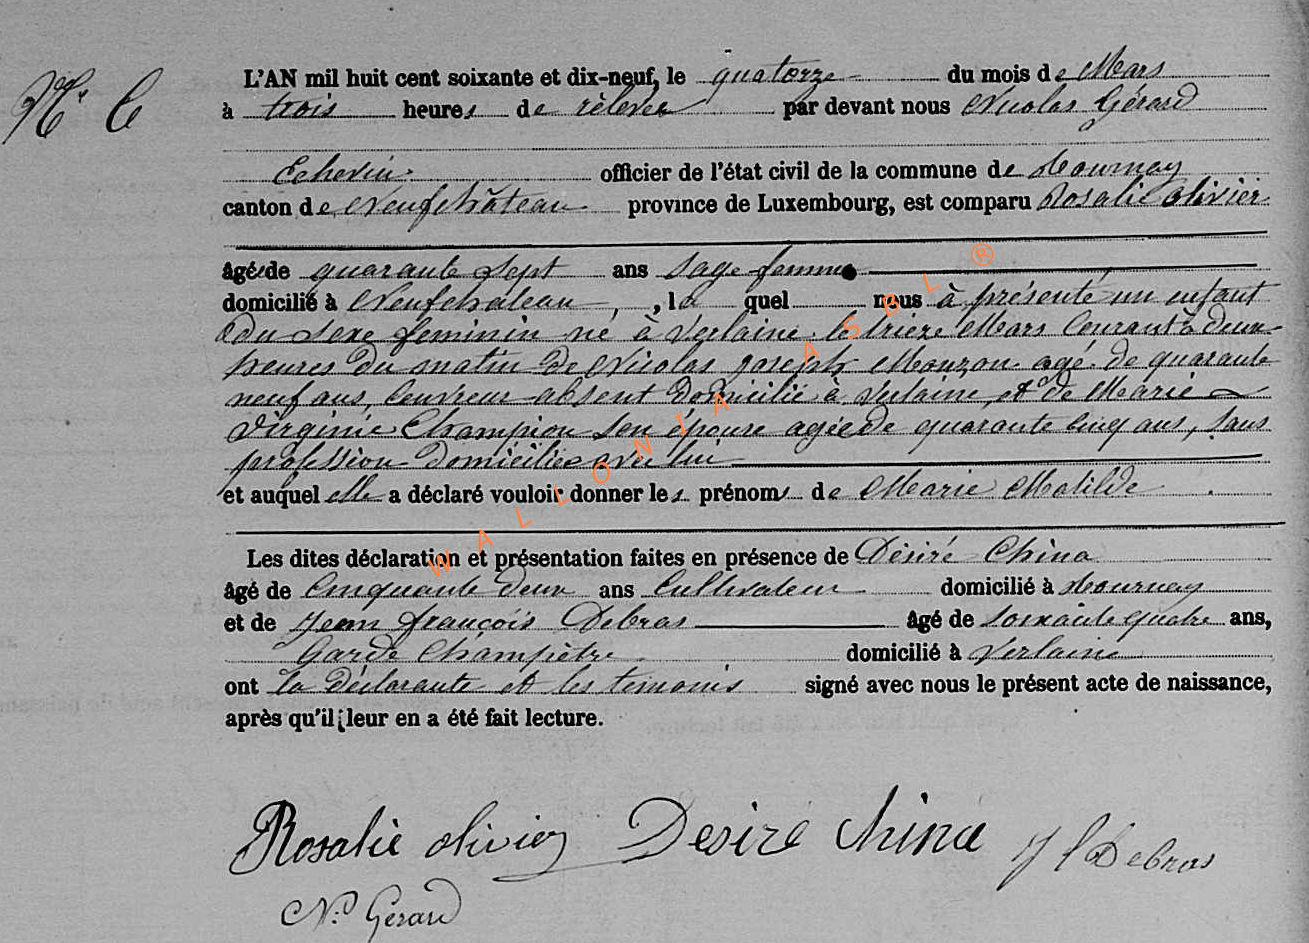 N° 6
L'AN mil huit cent soixante et dix-neuf, le quatorze du mois de Mars
à trois heures de relevée par devant nous Nicolas Gérard
Echevin officier de l'état civil de la commune de Tournay
canton de Neufchâteau province de Luxembourg, est comparu Rosalie Olivier
âgée de quarante sept ans sage femme
domicilié à Neufchateau, la quel nous à présenté un enfant
du sexe feminin né à Verlaine le trieze Mars Courant à deux
heures du matin de Nicolas joseph Monzon agé de quarante
neuf ans, Couvreur absent domicilié à Verlaine, et de Marie
Virginie Champion son épouse agée de quarante cinq ans, sans
profession domiciliée avec lui
et auquel elle a déclaré vouloir donner les prénoms de Marie Matilde
Les dites déclaration et présentation faites en présence de Désiré China
âgé de Cinquante deux ans Cultivateur domicilié à Tournay
et de Jean françois Debras âgé de soixante quatre ans,
Garde Champêtre domicilié à Verlaine
ont la déclarante et les temoins signé avec nous le présent acte de naissance,
après qu'il leur en a été fait lecture.
Rosalie olivier Desiré China J f Debras
N. Gérard
WALLONIA ASBL ®